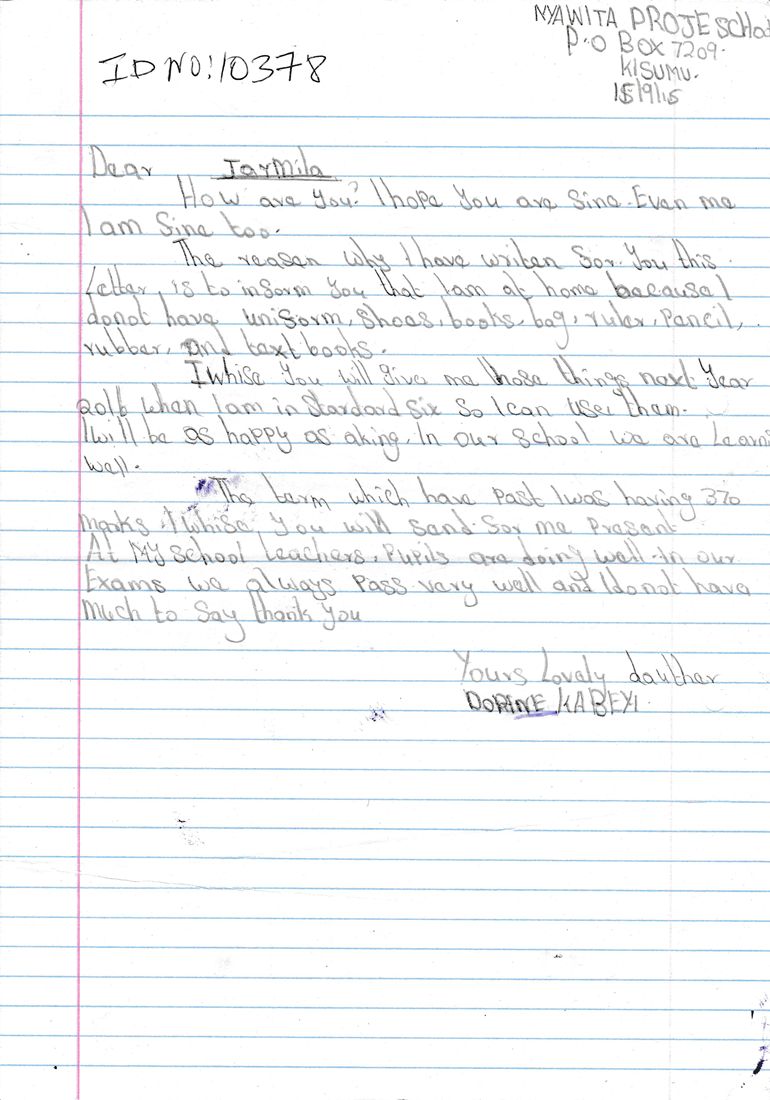 NYAWITA PROJE School
P.O BOX 7209.
KISUMU.
15/9/15
ID NO: 10378
Dear Jarmila
How are you? I hope you are Sine. Even me
I am Sine too.
The reason why I have writen Sor you this
letter, is to insorm you that I am at home because I
donot have uniSorm, Shoes, books, bag, ruler, Pencil,
rubber, and text books.
I whise you will give me those things next Year
2016 when I am in Standard Six So I can use them.
I will be as happy as aking. In our School we are Learni
well.
The term which have Past I was having 370
marks. I whise you will sand Sor me Present
At My School teachers, Pupils are doing well. In our
Exams we always Pass very well and I donot have
Much to Say thank you
Yours Lovely dauther
DORINE KABEYI.